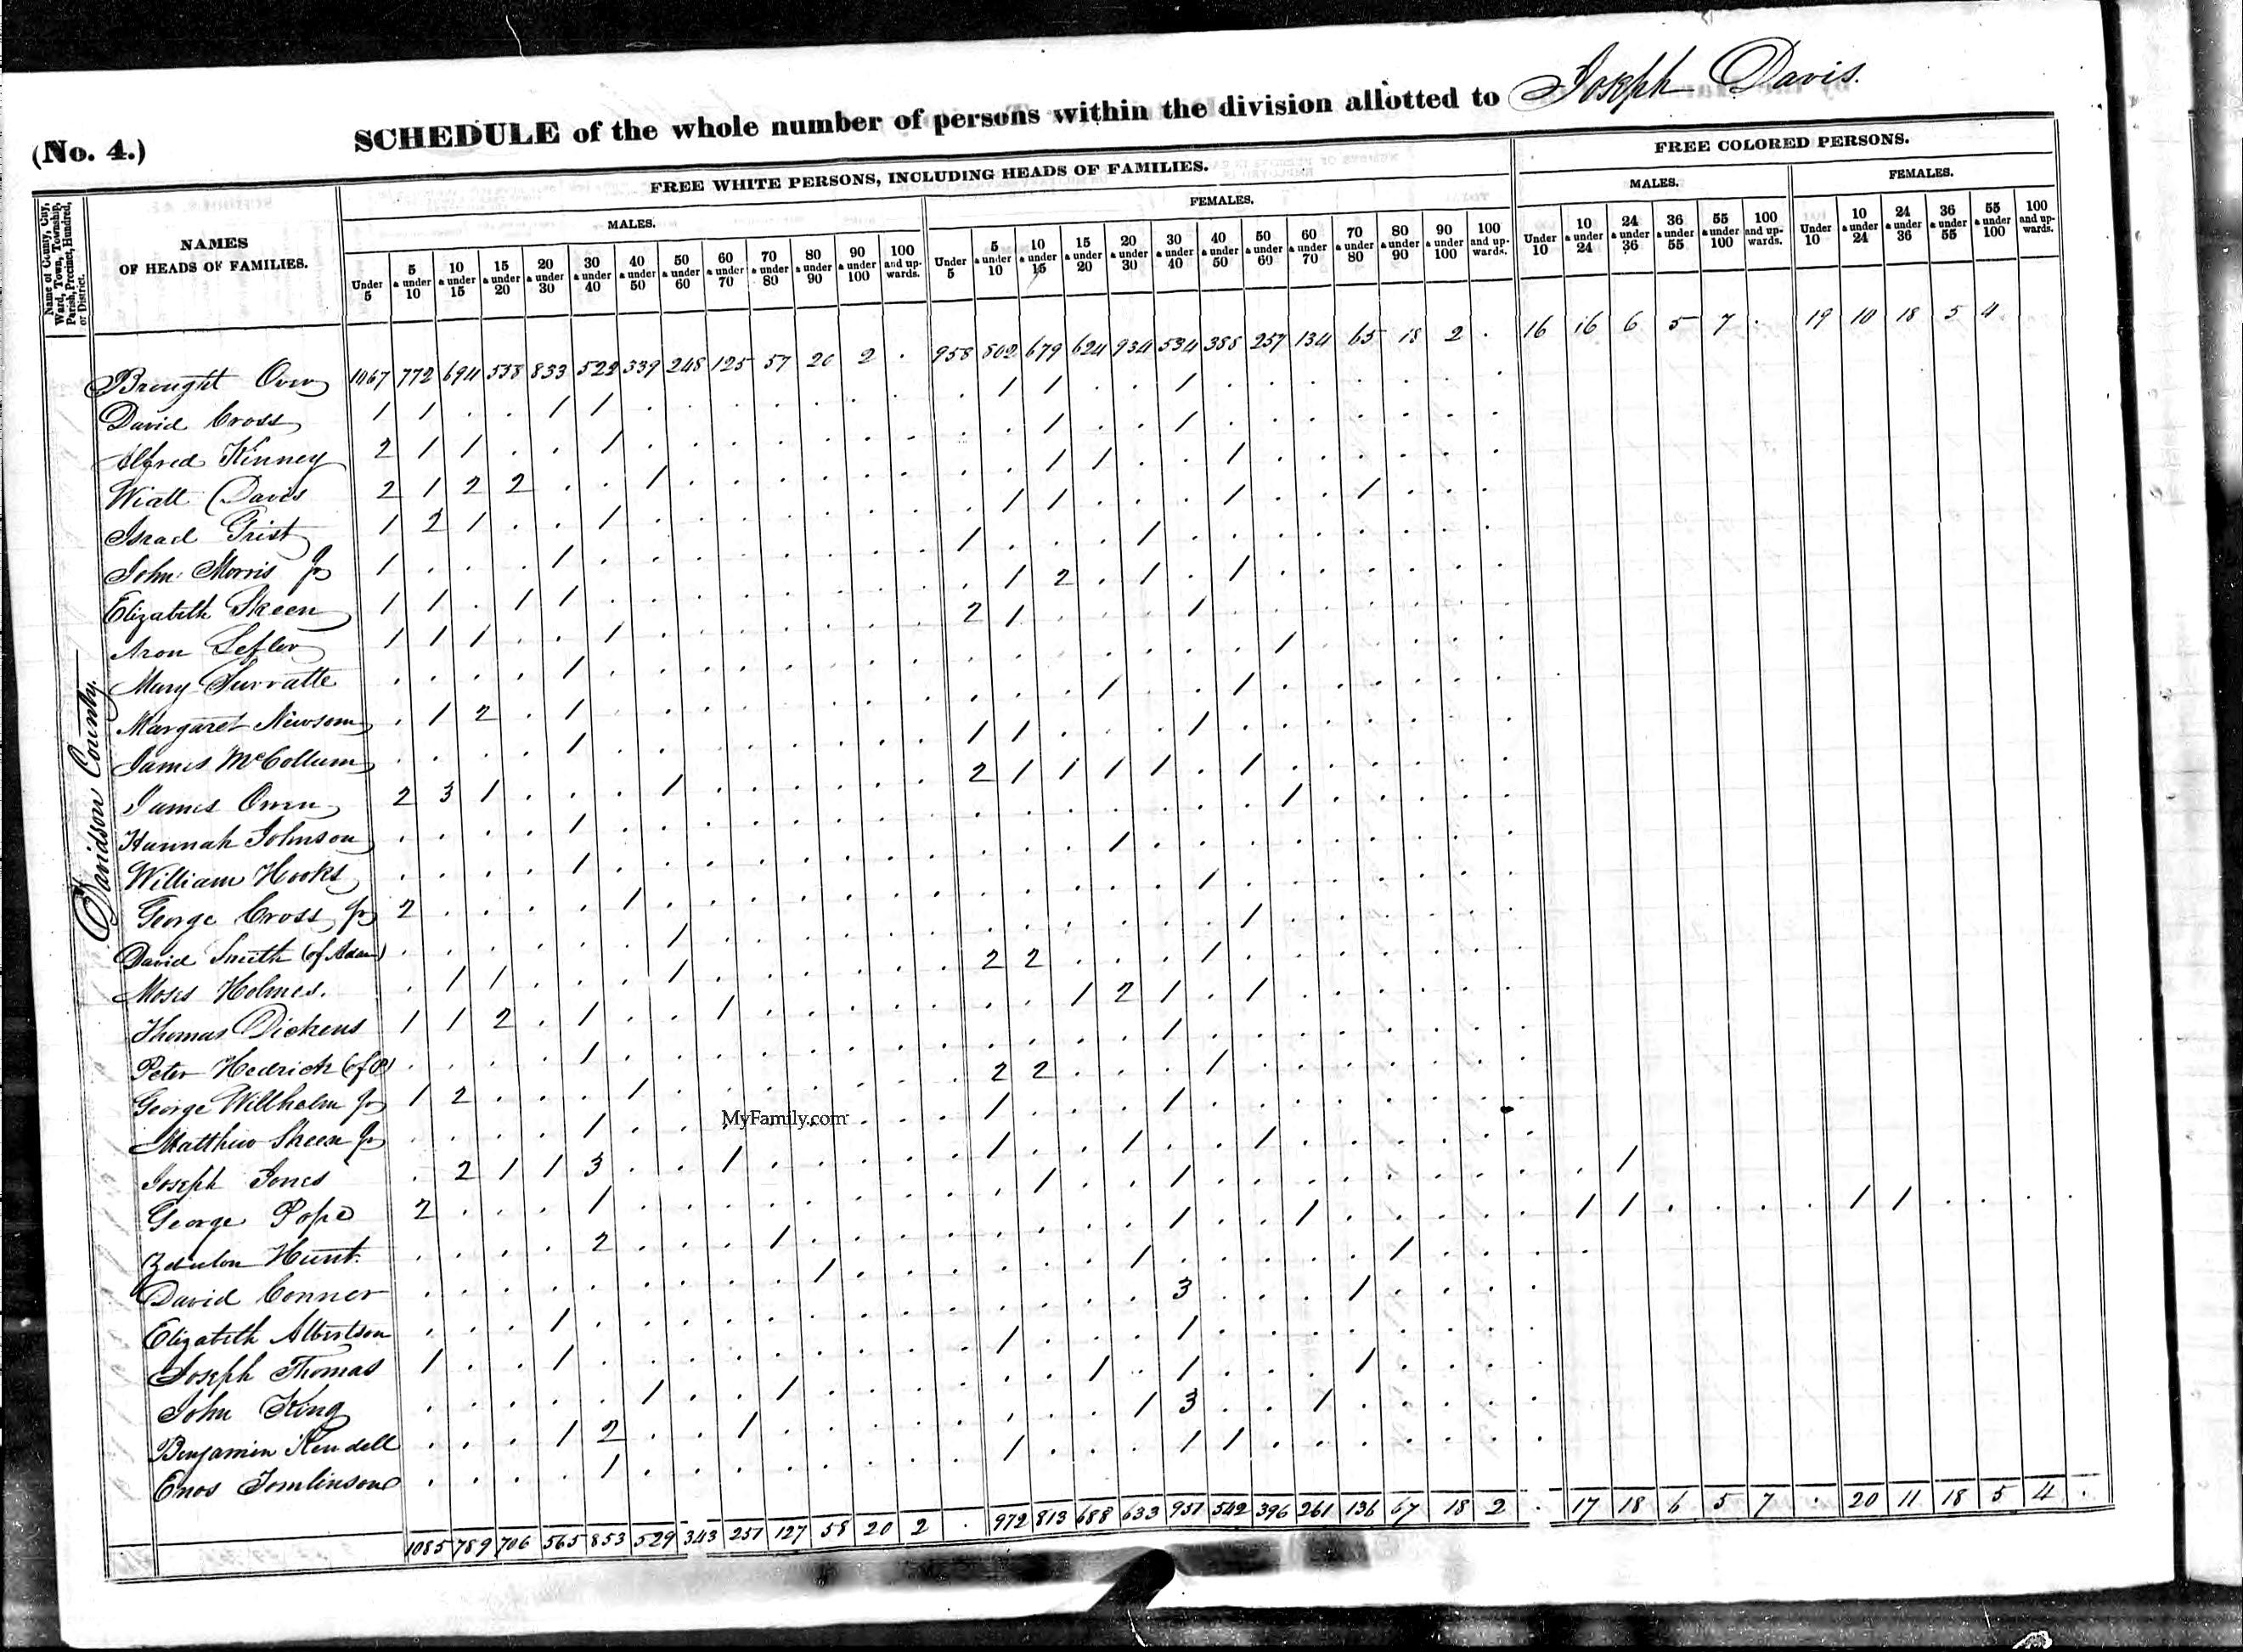 (No. 4.) SCHEDULE of the whole number of persons within the division allotted to Joseph Davis.
FREE WHITE PERSONS, INCLUDING HEADS OF FAMILIES. FREE COLORED PERSONS.
MALES. FEMALES. MALES. FEMALES.
Name of County, City, Ward, Town, Township, Parish, Precinct, Hundred, or District.
NAMES OF HEADS OF FAMILIES.
Under 5 | 5 & under 10 | 10 & under 15 | 15 & under 20 | 20 & under 30 | 30 & under 40 | 40 & under 50 | 50 & under 60 | 60 & under 70 | 70 & under 80 | 80 & under 90 | 90 & under 100 | 100 and upwards. | Under 5 | 5 & under 10 | 10 & under 15 | 15 & under 20 | 20 & under 30 | 30 & under 40 | 40 & under 50 | 50 & under 60 | 60 & under 70 | 70 & under 80 | 80 & under 90 | 90 & under 100 | 100 and upwards. | Under 10 | 10 & under 24 | 24 & under 36 | 36 & under 55 | 55 & under 100 | 100 and upwards. | Under 10 | 10 & under 24 | 24 & under 36 | 36 & under 55 | 55 & under 100 | 100 and upwards.
Davidson County.
Brought Over 1067 772 694 538 833 522 339 248 125 57 20 2 . 958 802 679 624 934 534 388 257 134 65 18 2 . 16 16 6 5 7 . 19 10 18 5 4
David Cross 1 1 . . 1 1 . . . . . . . . 1 1 . . 1 . . . . . . .
Alfred Kinney 2 1 1 . . 1 . . . . . . . . . 1 . . 1 . . . . . . .
Wiatt Davis 2 1 2 2 . . 1 . . . . . . . . 1 1 . . 1 . . . . . .
Israel Grist 1 2 1 . . 1 . . . . . . . . 1 1 . . . 1 . . 1 . . .
John Morris Jr 1 . . . 1 . . . . . . . . 1 . . . 1 . . . . . . . .
Elizabeth Skeen 1 1 . 1 1 . . . . . . . . . 1 2 . 1 . 1 . . . . . .
Aron Lefler 1 1 1 . . 1 . . . . . . . 2 1 . . . 1 . . . . . . .
Mary Surratte . . . . 1 . . . . . . . . . . . . . . . 1 . . . . .
Margaret Newsom . 1 2 . 1 . . . . . . . . . . . 1 . . 1 . . . . . .
James McCollum . . . . 1 . . . . . . . . 1 1 . . . 1 . . . . . . .
James Owen 2 3 1 . . . 1 . . . . . . 2 1 1 1 1 . 1 . . . . . .
Hannah Johnson . . . . 1 . . . . . . . . . . . . . . . 1 . . . . .
William Hooks . . . . 1 . . . . . . . . . . . 1 . . . . . . . . .
George Cross Jr 2 . . . . 1 . . . . . . . . . . . . 1 . . . . . . .
David Smith (of Adam) . . . . . . 1 . . . . . . . . . . . . 1 . . . . . .
Moses Holmes. . 1 1 . . . 1 . . . . . . 2 2 . . . 1 . . . . . . .
Thomas Dickens 1 1 2 . 1 . . 1 . . . . . . . 1 2 1 . 1 . . . . . .
Peter Hedrick (of P) . . . . 1 . . . . . . . . . . . . 1 . . . . . . . .
George Willhelm Jr 1 2 . . . 1 . . . . . . . 2 2 . . . 1 . . . . . . .
Matthew Skeen Jr . . . . 1 . . . . . . . . 1 . . . 1 . . . . . . . .
MyFamily.com
Joseph Jones . 2 1 1 3 . . 1 . . . . . 1 . . 1 . . 1 . . . . . . . 1
George Pope 2 . . . 1 . . . . . . . . . 1 . . 1 . . . . . . . .
Zebulon Hunt. . . . . 2 . . . 1 . . . . . . . . 1 . . 1 . . . . . 1 1 . . . . 1 1 . . . .
David Conner . . . . . . . . . 1 . . . . . . 1 . . . . . 1 . . .
Elizabeth Albertson . . . 1 . . . . . . . . . . . . . 3 . . . 1 . . . .
Joseph Thomas 1 . . 1 . . . . . . . . . 1 . . . 1 . . . . . . . .
John King . . . . . 1 . . 1 . . . . . . 1 . 1 . . . 1 . . . .
Benjamin Kendell . . . 1 2 . . 1 . . . . . . . . 1 3 . . 1 . . . . .
Enos Tomlinson . . . . 1 . . . . . . . . 1 . . . 1 1 . . . . . . .
1085 789 706 565 853 529 343 251 127 58 20 2 . 972 813 688 633 951 542 396 261 136 67 18 2 . 17 18 6 5 7 . 20 11 18 5 4 .